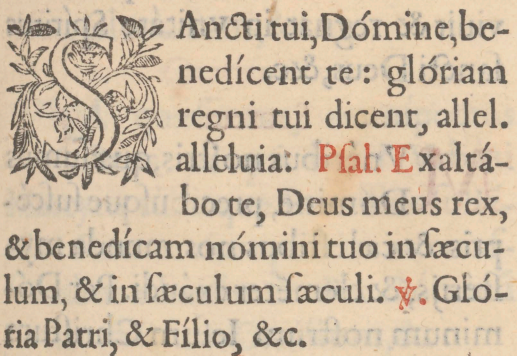 SAncti tui, Dómine, be-
nedícent te: glóriam
regni tui dicent, allel.
alleluia. Pſal. Exaltá-
bo te, Deus meus rex,
& benedícam nómini tuo in ſæcu-
lum, & in ſæculum ſæculi. ℣. Gló-
ria Patri, & Fílio, &c.